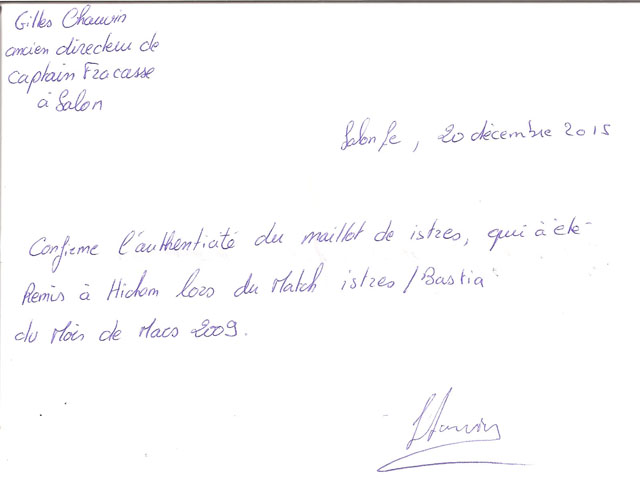 Gilles Chauvin
ancien directeur de
Captain Fracasse
à Salon
Salon le, 20 décembre 2015
Confirme l'authenticité du maillot de istres, qui à été
Remis à Hicham lors du Match istres/Bastia
du Mois de Mars 2009.